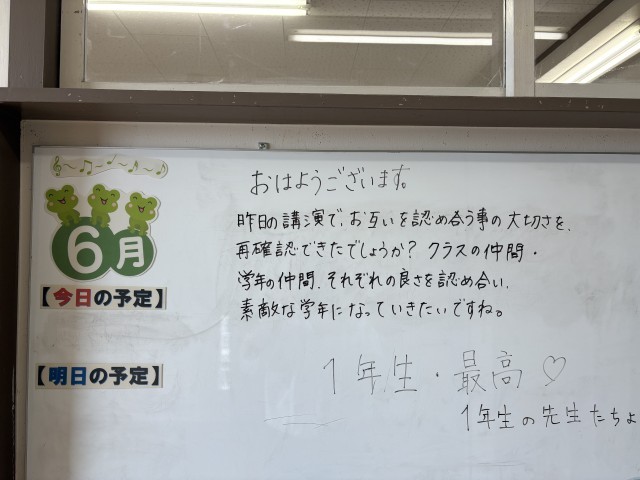 おはようございます。
昨日の講演で、お互いを認め合う事の大切さを、
再確認できたでしょうか？クラスの仲間・
学年の仲間、それぞれの良さを認め合い、
素敵な学年になっていきたいですね。
1年生・最高♡
1年生の先生たちよ
6月
【今日の予定】
【明日の予定】